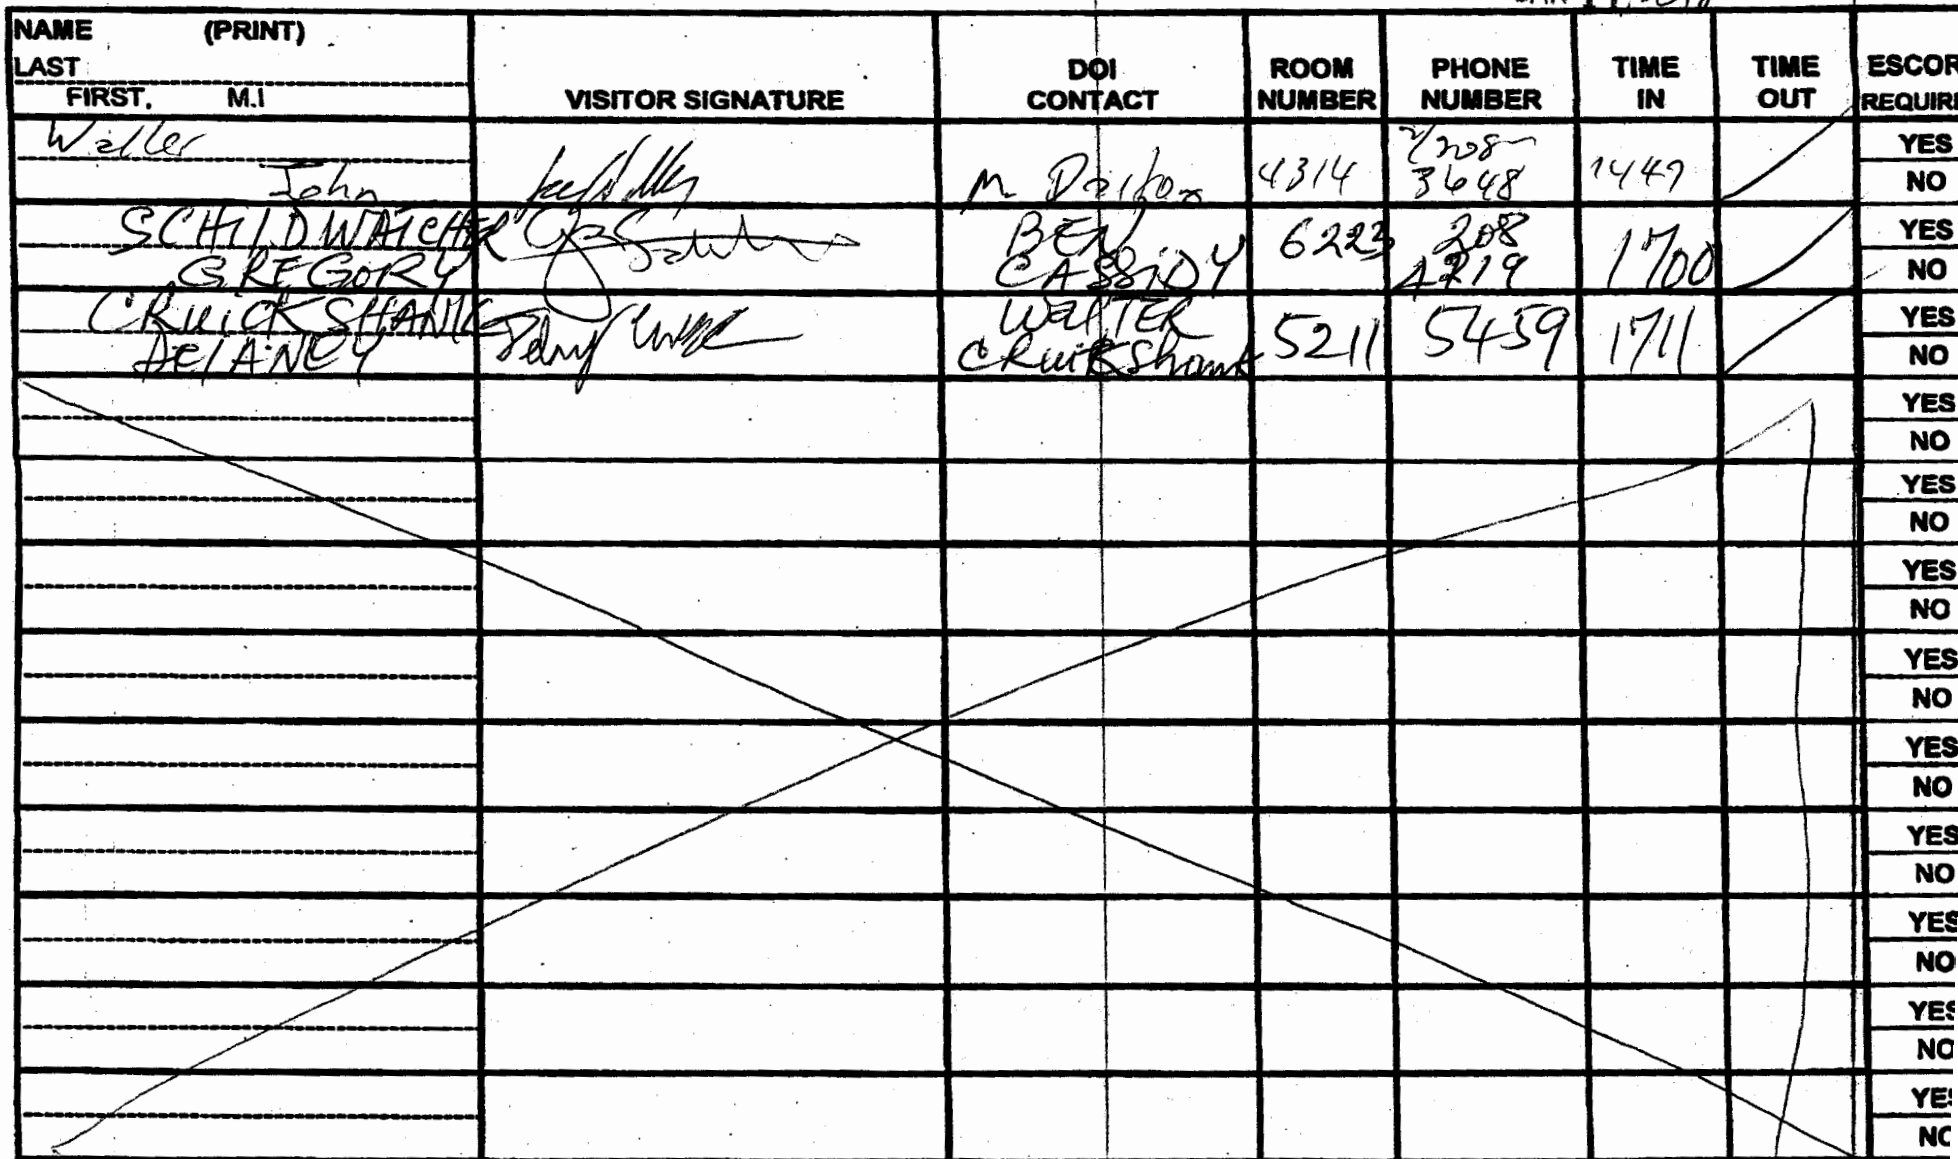 NAME (PRINT)
LAST
FIRST, M.I
VISITOR SIGNATURE
DOI
CONTACT
ROOM
NUMBER
PHONE
NUMBER
TIME
IN
TIME
OUT
ESCOR
REQUIRE
Waller
John
M
4314
3648
YES
NO
SCHILDWATCHER
GREGORY
BEN
CASSIDY
6223
208
4219
1700
YES
NO
CRUICKSHANK
DELANEY
WALTER
CRUIKShank
5211
5459
1711
YES
NO
YES
NO
YES
NO
YES
NO
YES
NO
YES
NO
YES
NO
YES
NO
YES
NO
YE
NO